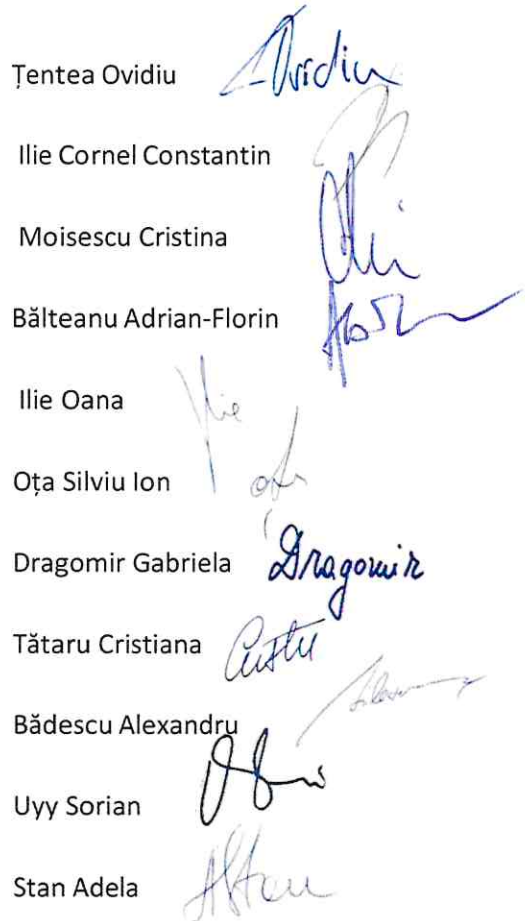 Țentea Ovidiu Ovidiu
Ilie Cornel Constantin
Moisescu Cristina
Bălteanu Adrian-Florin
Ilie Oana Ilie
Oța Silviu Ion
Dragomir Gabriela Dragomir
Tătaru Cristiana
Bădescu Alexandru
Uyy Sorian
Stan Adela AStan